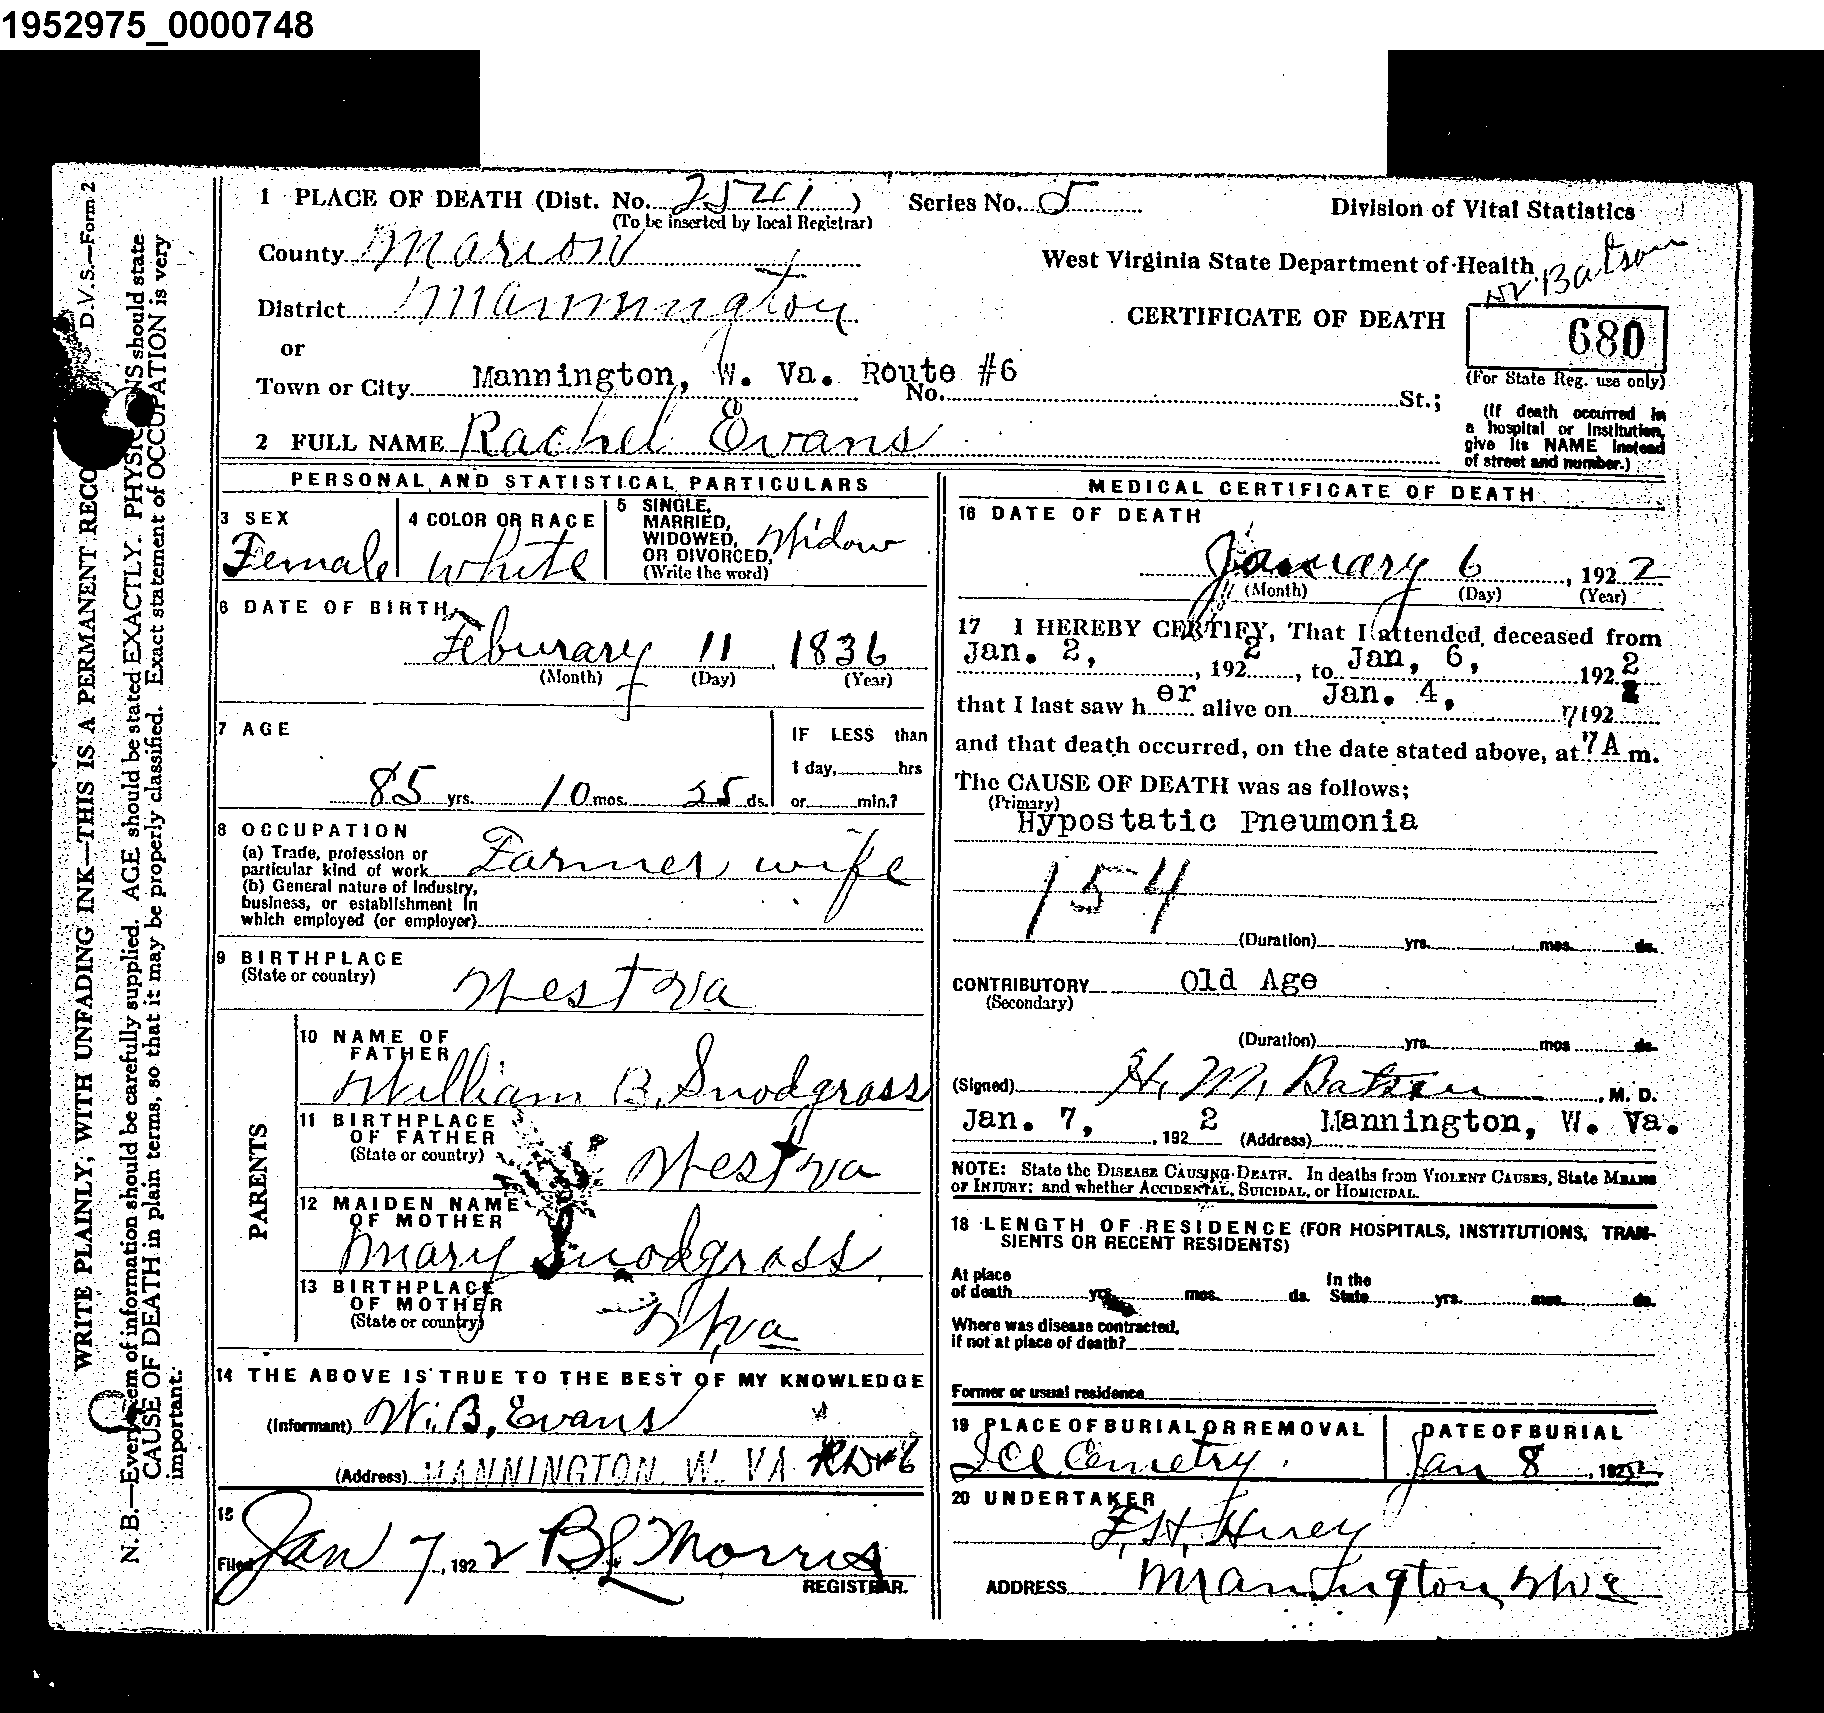 1952975_0000748
D.V.S.—Form 2
WRITE PLAINLY, WITH UNFADING INK—THIS IS A PERMANENT RECO
N. B.—Every item of information should be carefully supplied. AGE should be stated EXACTLY. PHYSICIANS should state
CAUSE OF DEATH in plain terms, so that it may be properly classified. Exact statement of OCCUPATION is very
important.
1 PLACE OF DEATH (Dist. No. 2541)
(To be inserted by local Registrar)
Series No. 5
Division of Vital Statistics
County Marion
West Virginia State Department of Health
Batson
District Mannington
CERTIFICATE OF DEATH
680
(For State Reg. use only)
or
Town or City Mannington, W. Va. Route #6
No. St.;
(If death occurred in
a hospital or institution,
give its NAME instead
of street and number.)
2 FULL NAME Rachel Evans
PERSONAL AND STATISTICAL PARTICULARS
3 SEX
Female
4 COLOR OR RACE
White
5 SINGLE,
MARRIED,
WIDOWED,
OR DIVORCED,
(Write the word)
Widow
6 DATE OF BIRTH
Feburary 11 1836
(Month) (Day) (Year)
7 AGE
85 yrs. 10 mos. 25 ds.
IF LESS than
1 day, hrs
or min.?
8 OCCUPATION
(a) Trade, profession or
particular kind of work Farmer wife
(b) General nature of Industry,
business, or establishment in
which employed (or employer)
9 BIRTHPLACE
(State or country)
West Va
PARENTS
10 NAME OF
FATHER
William B. Snodgrass
11 BIRTHPLACE
OF FATHER
(State or country)
West Va
12 MAIDEN NAME
OF MOTHER
Mary Snodgrass
13 BIRTHPLACE
OF MOTHER
(State or country)
W, Va
14 THE ABOVE IS TRUE TO THE BEST OF MY KNOWLEDGE
(Informant) W. B. Evans
(Address) MANNINGTON W. VA RD#6
15
Filed Jan 7, 1922 BL Morris
REGISTRAR.
MEDICAL CERTIFICATE OF DEATH
16 DATE OF DEATH
January 6, 1922
(Month) (Day) (Year)
17 I HEREBY CERTIFY, That I attended deceased from
Jan. 2, 1922, to Jan, 6, 1922
that I last saw her alive on Jan. 4, 1922
and that death occurred, on the date stated above, at 7A m.
The CAUSE OF DEATH was as follows;
(Primary)
Hypostatic Pneumonia
154
(Duration) yrs. mos. ds.
CONTRIBUTORY Old Age
(Secondary)
(Duration) yrs. mos ds.
(Signed) H. M. Batson, M. D.
Jan. 7, 1922 (Address) Mannington, W. Va.
NOTE: State the DISEASE CAUSING DEATH. In deaths from VIOLENT CAUSES, State MEANS
OF INJURY: and whether ACCIDENTAL, SUICIDAL, or HOMICIDAL.
18 LENGTH OF RESIDENCE (FOR HOSPITALS, INSTITUTIONS, TRAN-
SIENTS OR RECENT RESIDENTS)
At place
of death yrs. mos. ds.
In the
State yrs. mos. ds.
Where was disease contracted,
if not at place of death?
Former or usual residence
19 PLACE OF BURIAL OR REMOVAL
Cemetry.
DATE OF BURIAL
Jan 8, 1922
20 UNDERTAKER
F. H.
ADDRESS Mannington, W Va